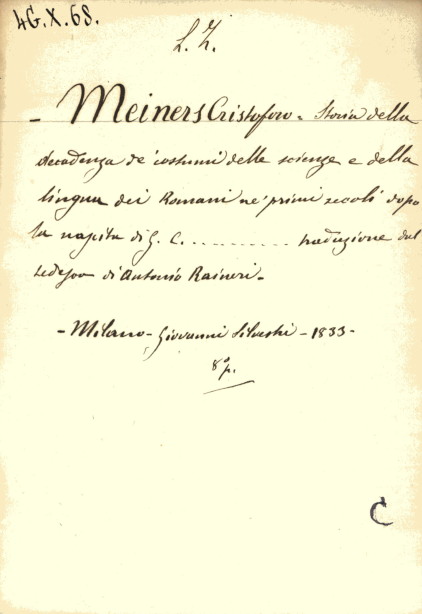 4G.X.68.
L. Z.
- Meiners Cristoforo - Storia della
decadenza de' costumi delle scienze e della
lingua dei Romani ne' primi secoli dopo
la nascita di G. C. .......... traduzione dal
tedesco di Antonio Raineri -
- Milano - Giovanni Silvestri - 1833 -
8º.
C